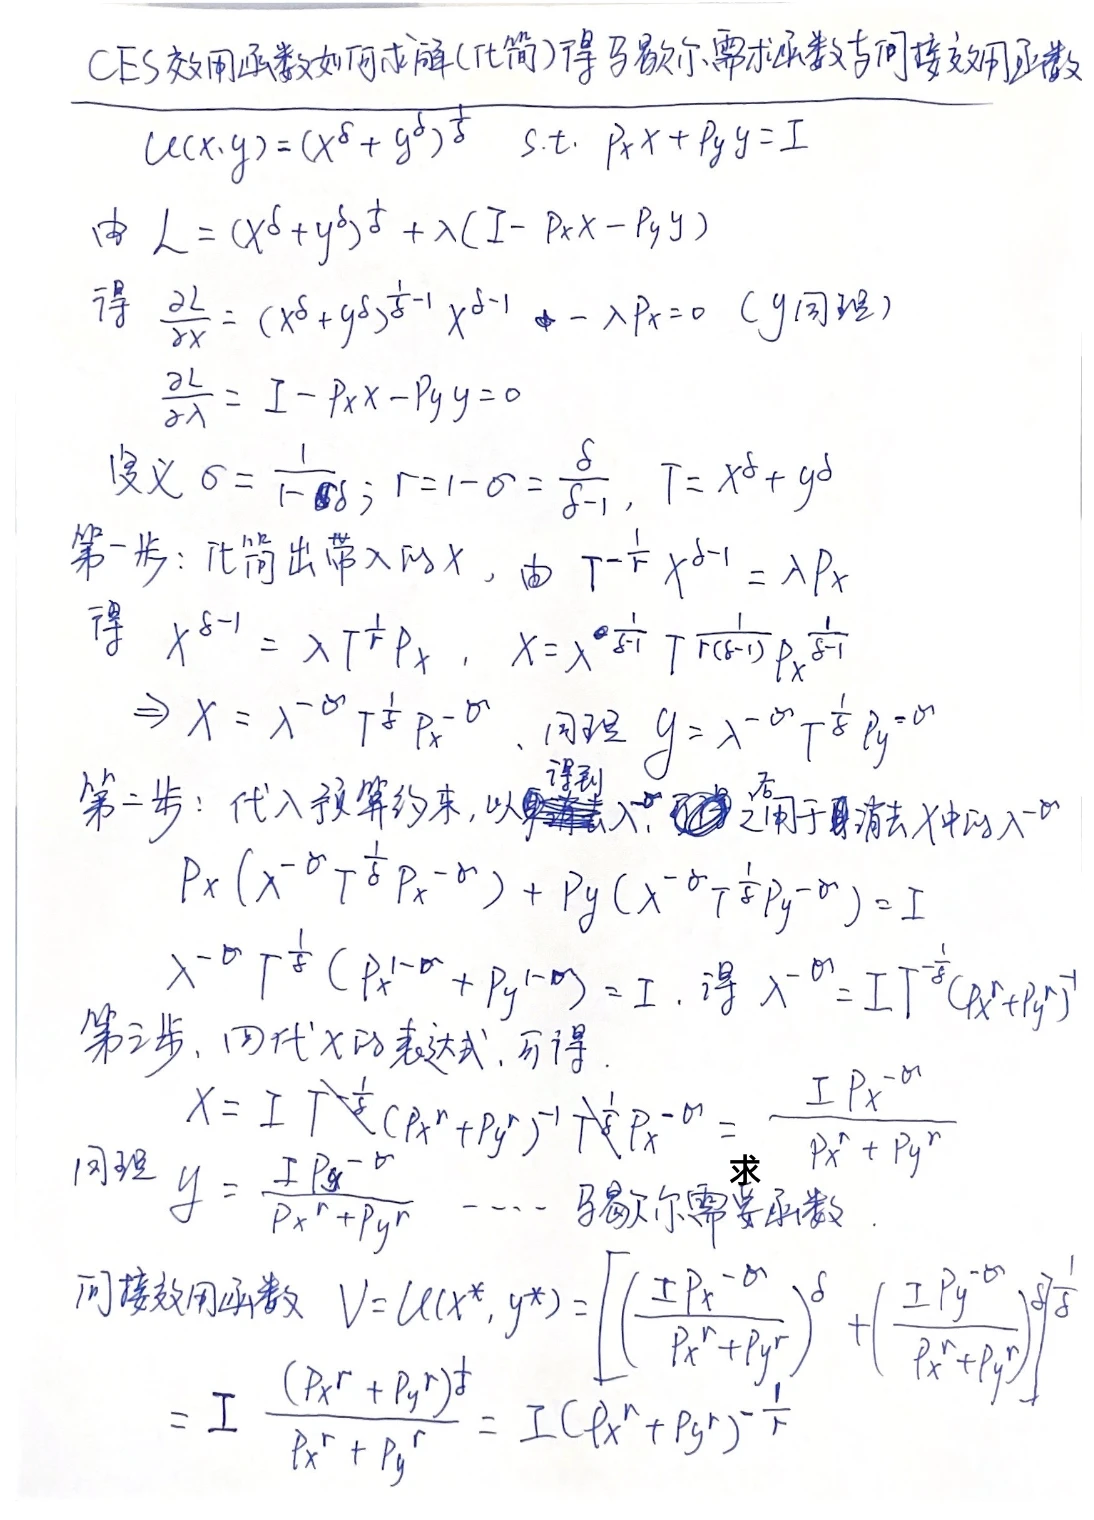 CES效用函数如何求解(化简)得马歇尔需求函数与间接效用函数
U(x,y)=(x^δ+y^δ)^{1/δ} s.t. P_x x+P_y y=I
由 L=(x^δ+y^δ)^{1/δ}+λ(I-P_x x-P_y y)
得 ∂L/∂x=(x^δ+y^δ)^{1/δ-1} x^{δ-1} -λP_x=0 (y同理)
∂L/∂λ=I-P_x x-P_y y=0
定义 σ=1/(1-δ); r=1-σ=δ/(δ-1), T=x^δ+y^δ
第一步: 化简出带入的x, 由 T^{-1/r} x^{δ-1}=λP_x
得 x^{δ-1}=λT^{1/r}P_x, x=λ^{1/(δ-1)} T^{1/(r(δ-1))} P_x^{1/(δ-1)}
⇒ x=λ^{-σ} T^{1/δ} P_x^{-σ}、同理 y=λ^{-σ} T^{1/δ} P_y^{-σ}
第二步: 代入预算约束, 以得到λ^{-σ}, 之后用于消去x中的λ^{-σ}
P_x(λ^{-σ} T^{1/δ} P_x^{-σ})+P_y(λ^{-σ} T^{1/δ} P_y^{-σ})=I
λ^{-σ} T^{1/δ}(P_x^{1-σ}+P_y^{1-σ})=I. 得 λ^{-σ}=I T^{-1/δ}(P_x^r+P_y^r)^{-1}
第三步、回代x的表达式、可得.
x=I T^{-1/δ}(P_x^r+P_y^r)^{-1} T^{1/δ} P_x^{-σ}=I P_x^{-σ}/(P_x^r+P_y^r)
同理 y=I P_y^{-σ}/(P_x^r+P_y^r) ---- 马歇尔需求函数.
间接效用函数 V=U(x*,y*)=[(I P_x^{-σ}/(P_x^r+P_y^r))^δ+(I P_y^{-σ}/(P_x^r+P_y^r))^δ]^{1/δ}
=I (P_x^r+P_y^r)^{1/δ}/(P_x^r+P_y^r)=I(P_x^r+P_y^r)^{-1/r}